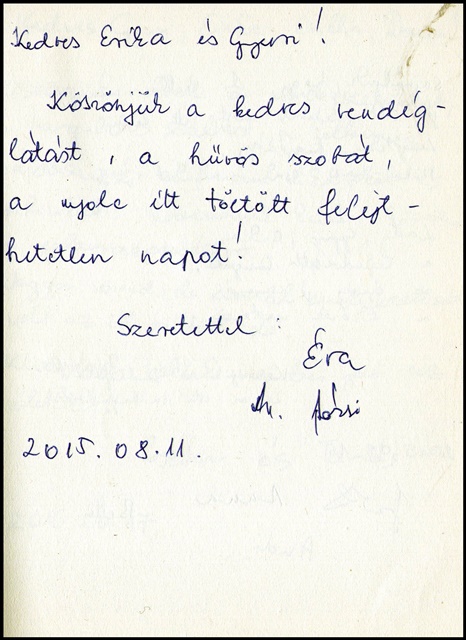 Kedves Erika és Gyuri!
Köszönjük a kedves vendég-
látást, a hűvös szobát,
a nyolc itt töltött felejt-
hetetlen napot!
Szeretettel:
Éva
2015.08.11.